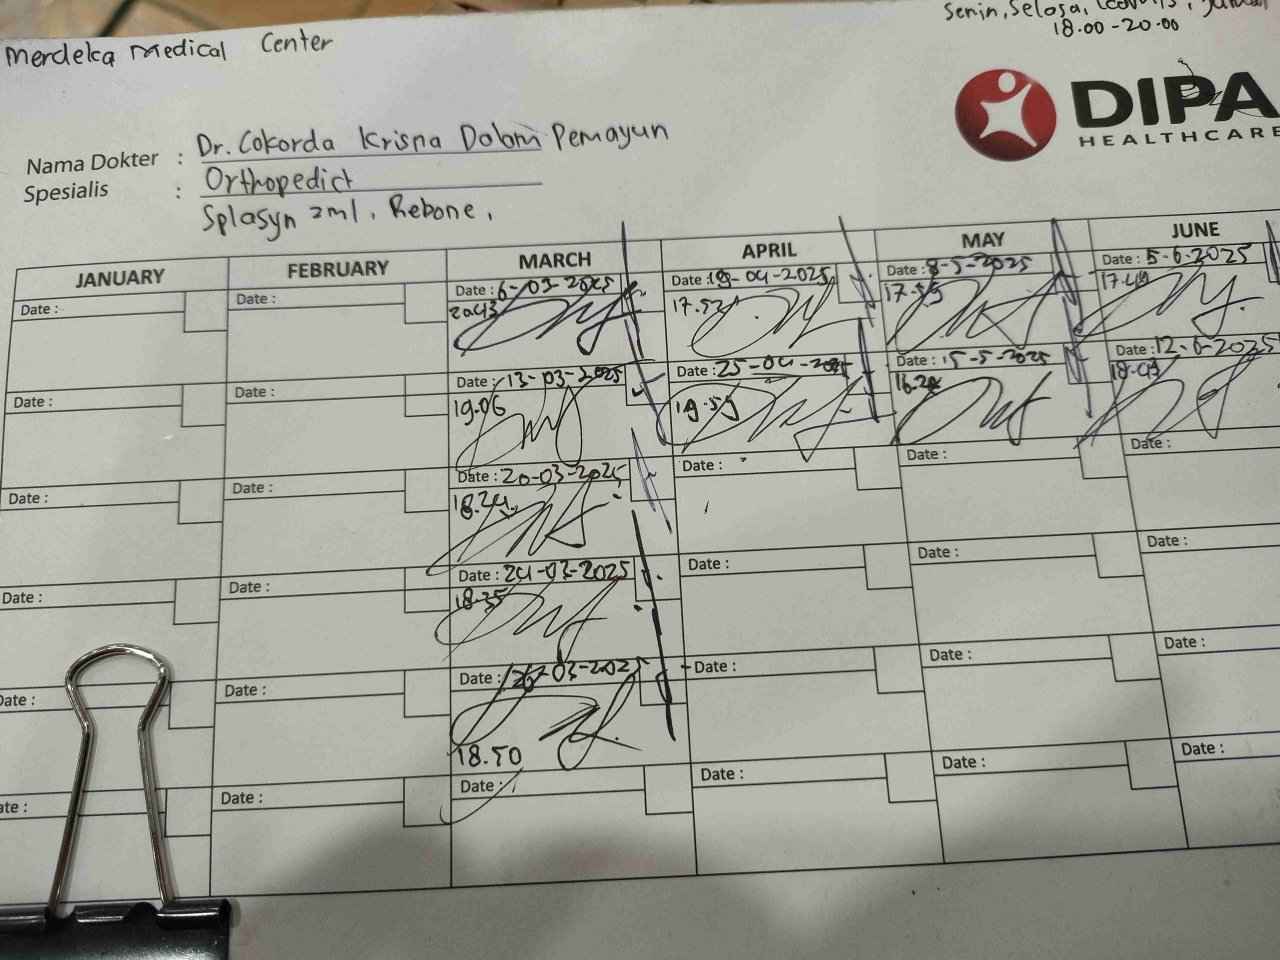 Merdeka Medical Center
Senin, Selasa,
18.00-20.00
DIPA
HEALTHCARE
Nama Dokter : Dr. Cokorda Krisna Dalam Pemayun
Spesialis : Orthopedict
Splasyn 2ml, Rebone,
JANUARY FEBRUARY MARCH APRIL MAY JUNE
Date : Date : Date : 6-03-2025 Date : 19-04-2025 Date : 8-5-2025 Date : 5-6-2025
17.52 17.55 17.49
Date : Date : Date : 13-03-2025 Date : 25-04-2025 Date : 15-5-2025 Date : 12-6-2025
19.06 19.55 18.43
Date : Date : Date : 20-03-2025 Date : Date : Date :
18.24
Date : Date : Date : 24-03-2025 Date : Date : Date :
18.35
Date : Date : Date : 26-03-2025 Date : Date : Date :
18.50
Date : Date : Date : Date : Date : Date :